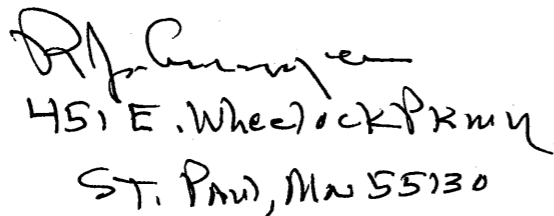 451 E. Wheelock Pkwy
St. Paul, MN 55130